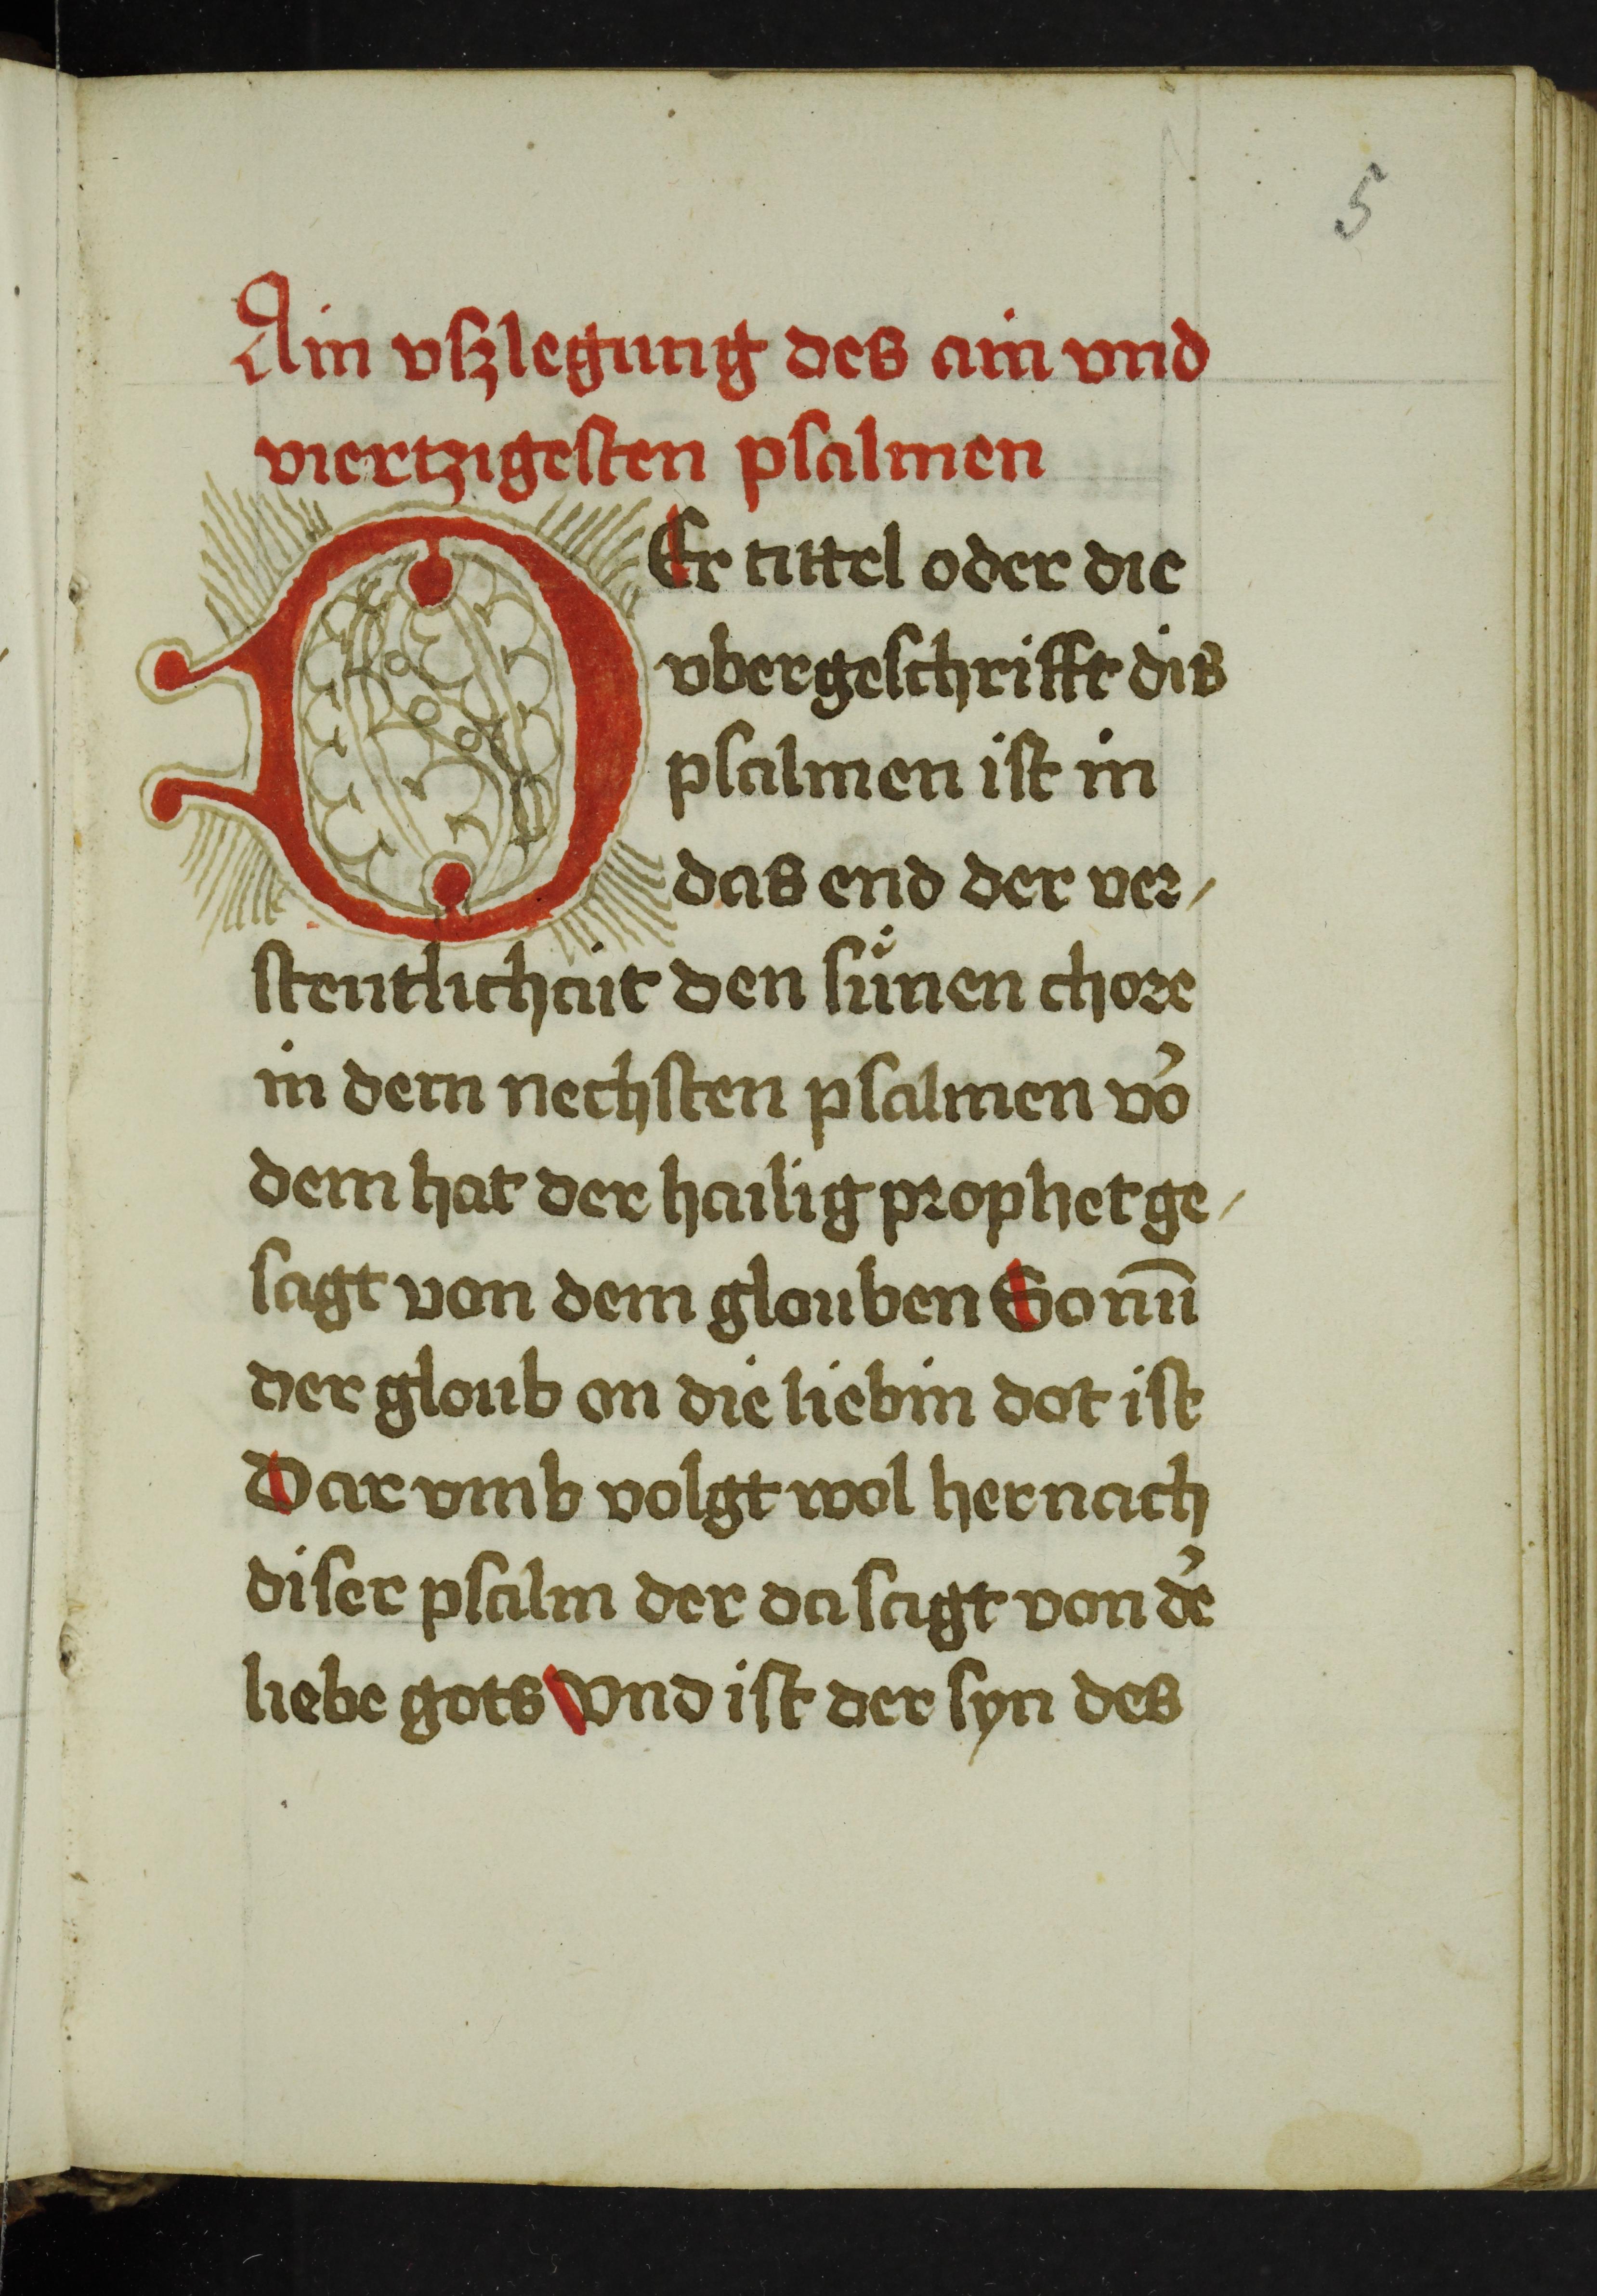 5
Ain vſzlegung des ain vnd
viertzigeſten pſalmen
DEr tittel oder die
vbergeſchrifft dis
pſalmen iſt in
das end der ver⸗
ſtentlichait den ſu̇nen chore
in dem nechſten pſalmen vo̅
dem hat der hailig prophet ge⸗
ſagt von dem glouben So nu̅
der gloub on die liebin dot iſt
Dar vmb volgt wol her nach
diſer pſalm der da ſagt von de̅
liebe gots Vnd iſt der ſyn des